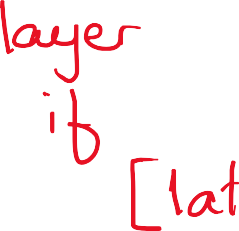 layer
if
[lat